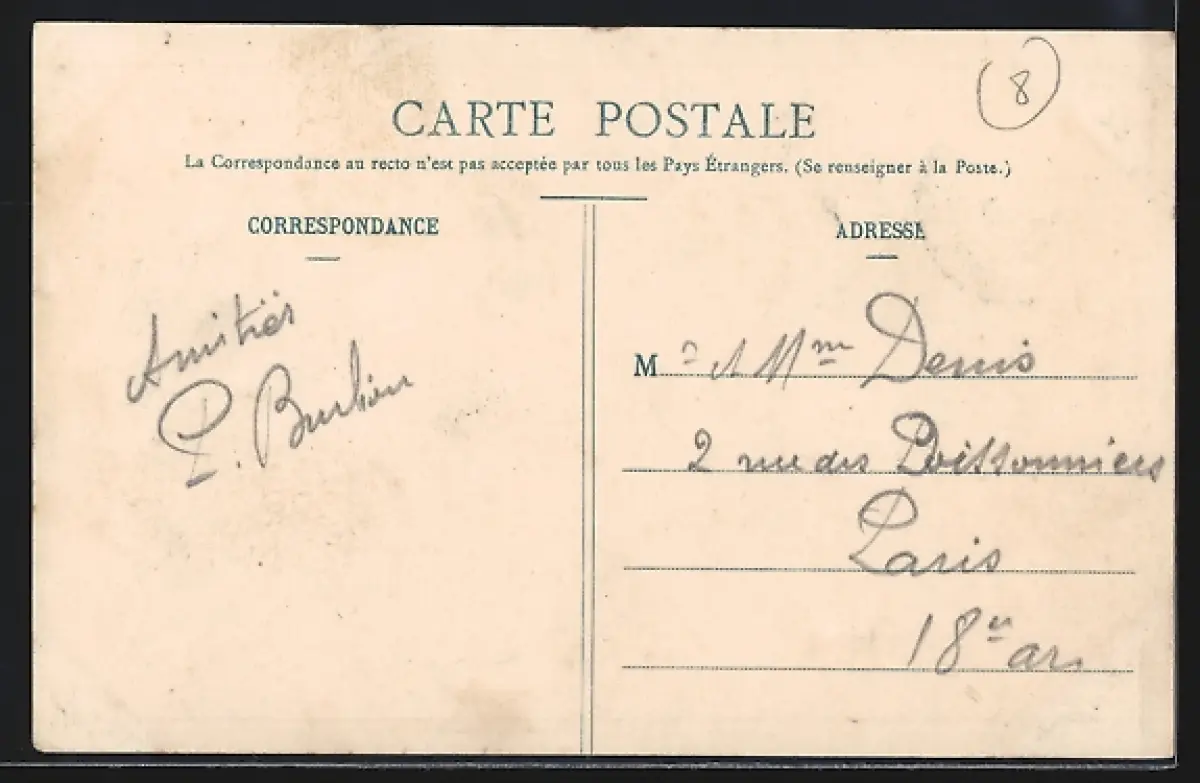 8
CARTE POSTALE
La Correspondance au recto n'est pas acceptée par tous les Pays Étrangers. (Se renseigner à la Poste.)
CORRESPONDANCE
ADRESSE
Amitiés
M Mme Denis
2 rue des Poissonniers
Paris
18e ar.